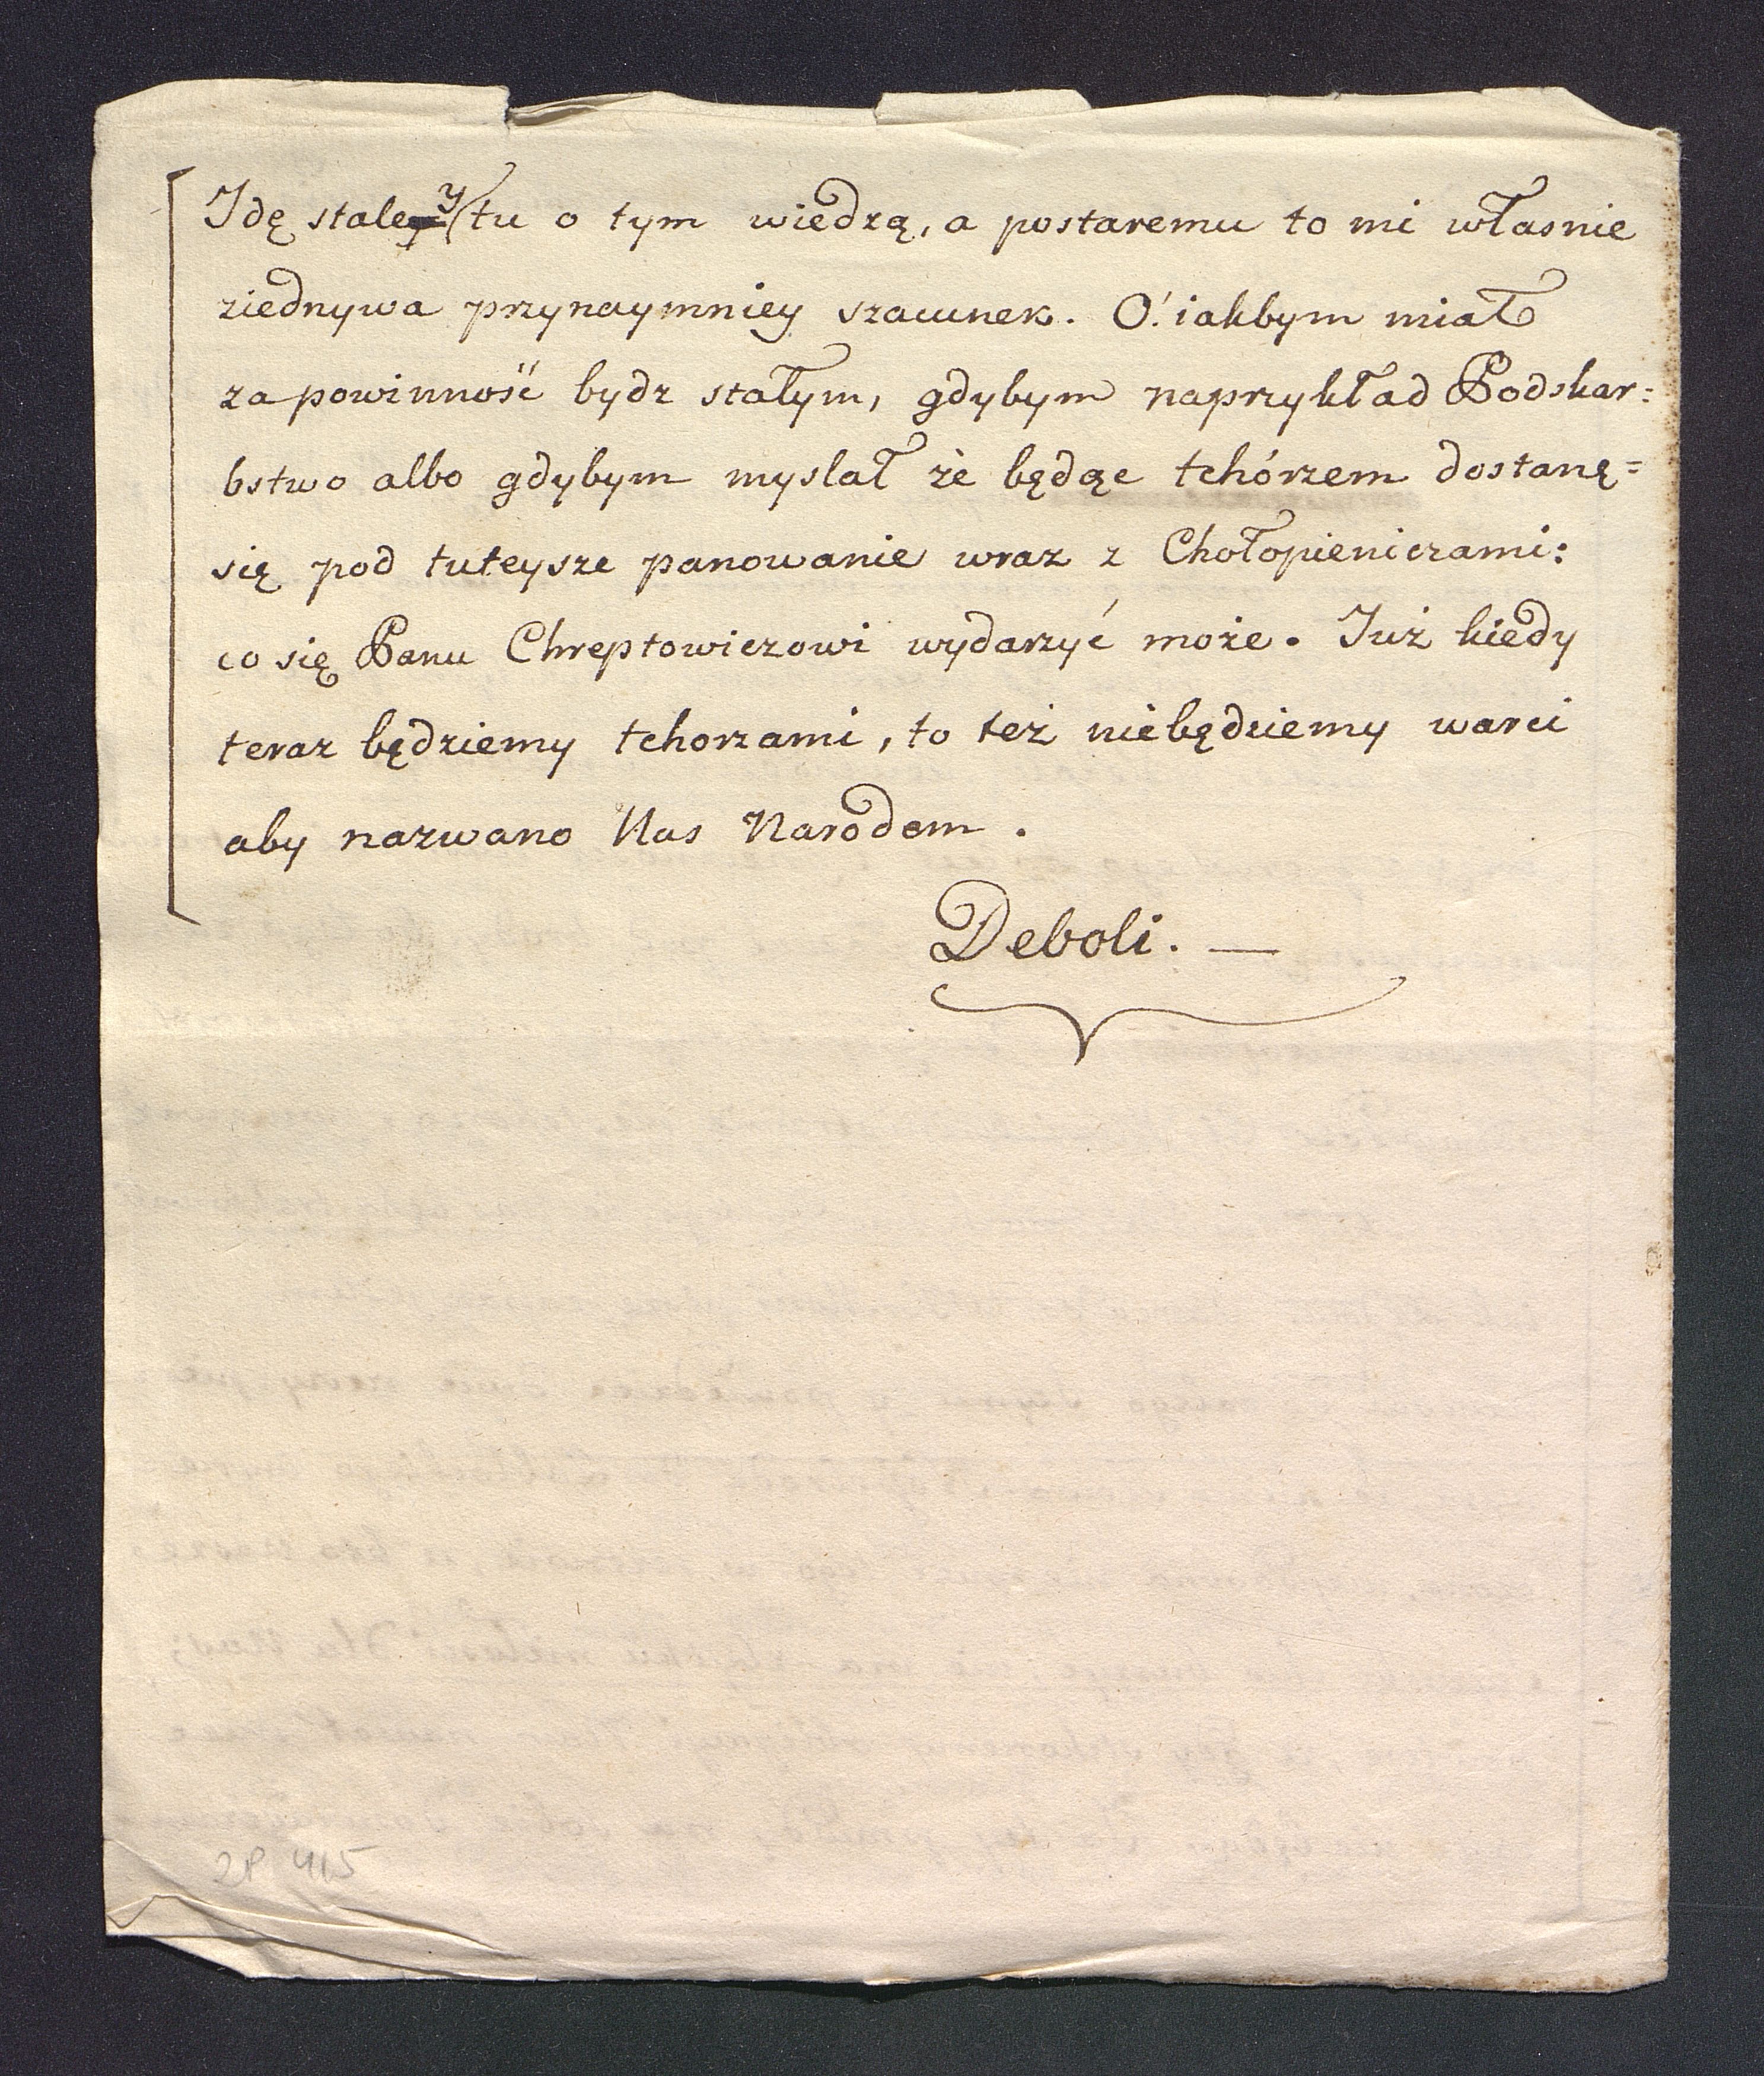 Idę stale y tu o tym wiedzą, a postaremu to mi własnie
ziednywa przynaymniey szacunek. O! iakbym miał
za powinność bydz stałym, gdybym naprzykład Podskar=
bstwo albo gdybym myslał że będąc tchórzem dostanę=
się pod tuteysze panowanie wraz z Chołopieniczami:
co się Panu Chreptowiczowi wydarzyć może. Już kiedy
teraz będziemy tchorzami, to też niebędziemy warci
aby nazwano Nas Narodem.
Deboli. —
415